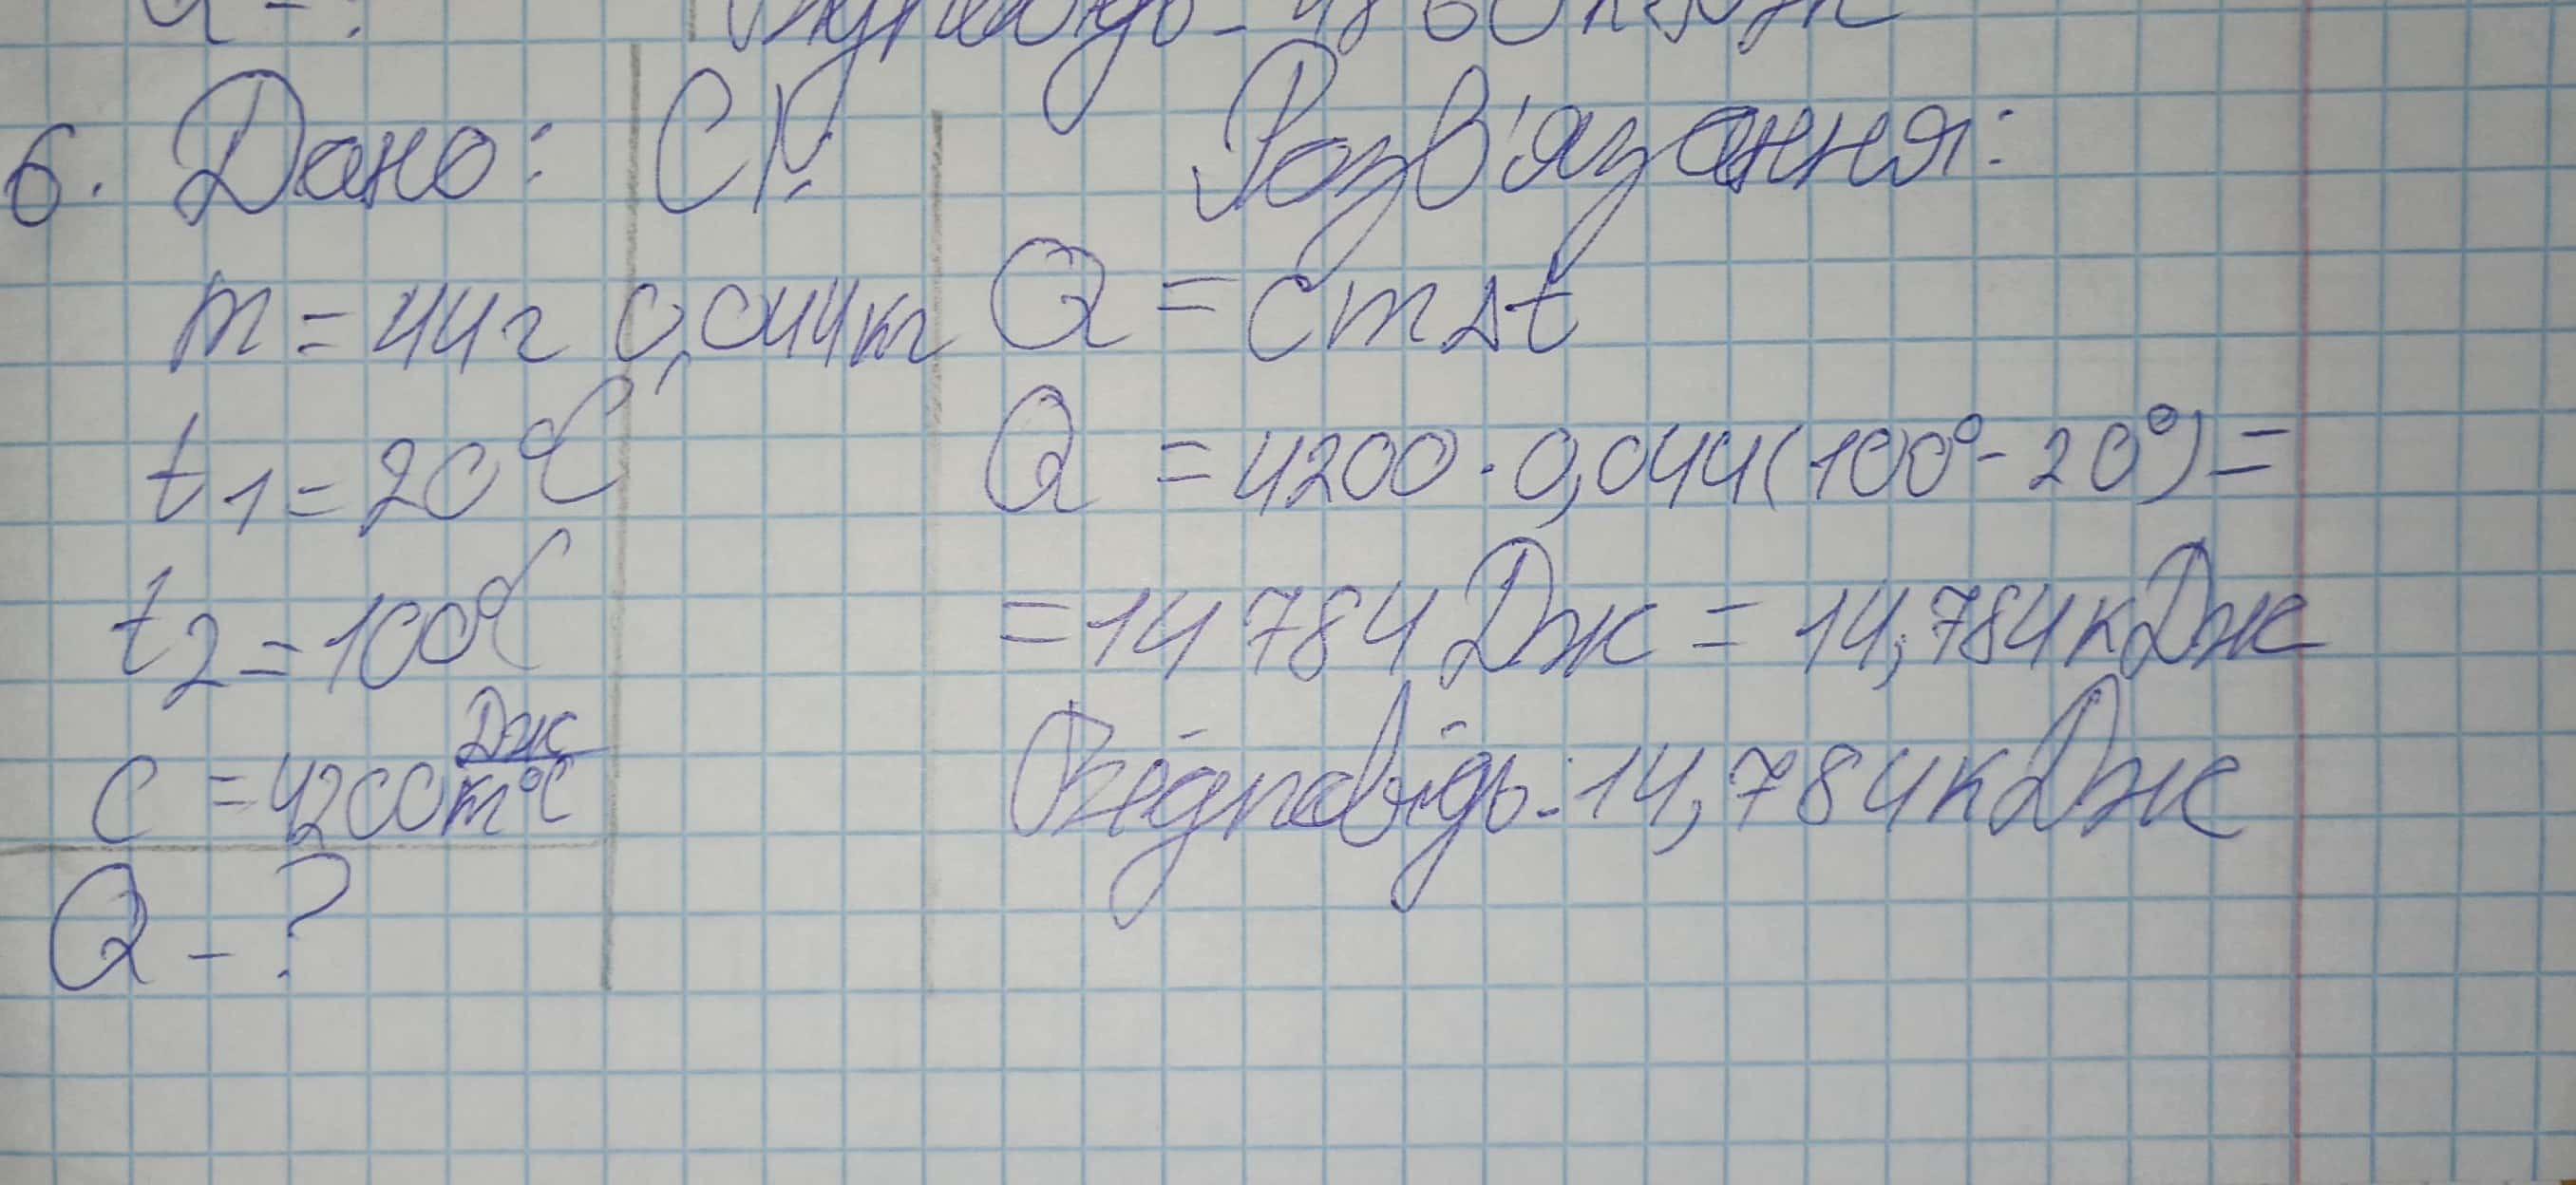 6. Дано: СІ Розв'язання:
m = 44 г 0,044 кг Q = cmΔt
t1 = 20°C Q = 4200 · 0,044(100° - 20°) =
t2 = 100°C = 14 784 Дж = 14,784 кДж
c = 4200 Дж/кг°C Відповідь - 14,784 кДж
Q - ?